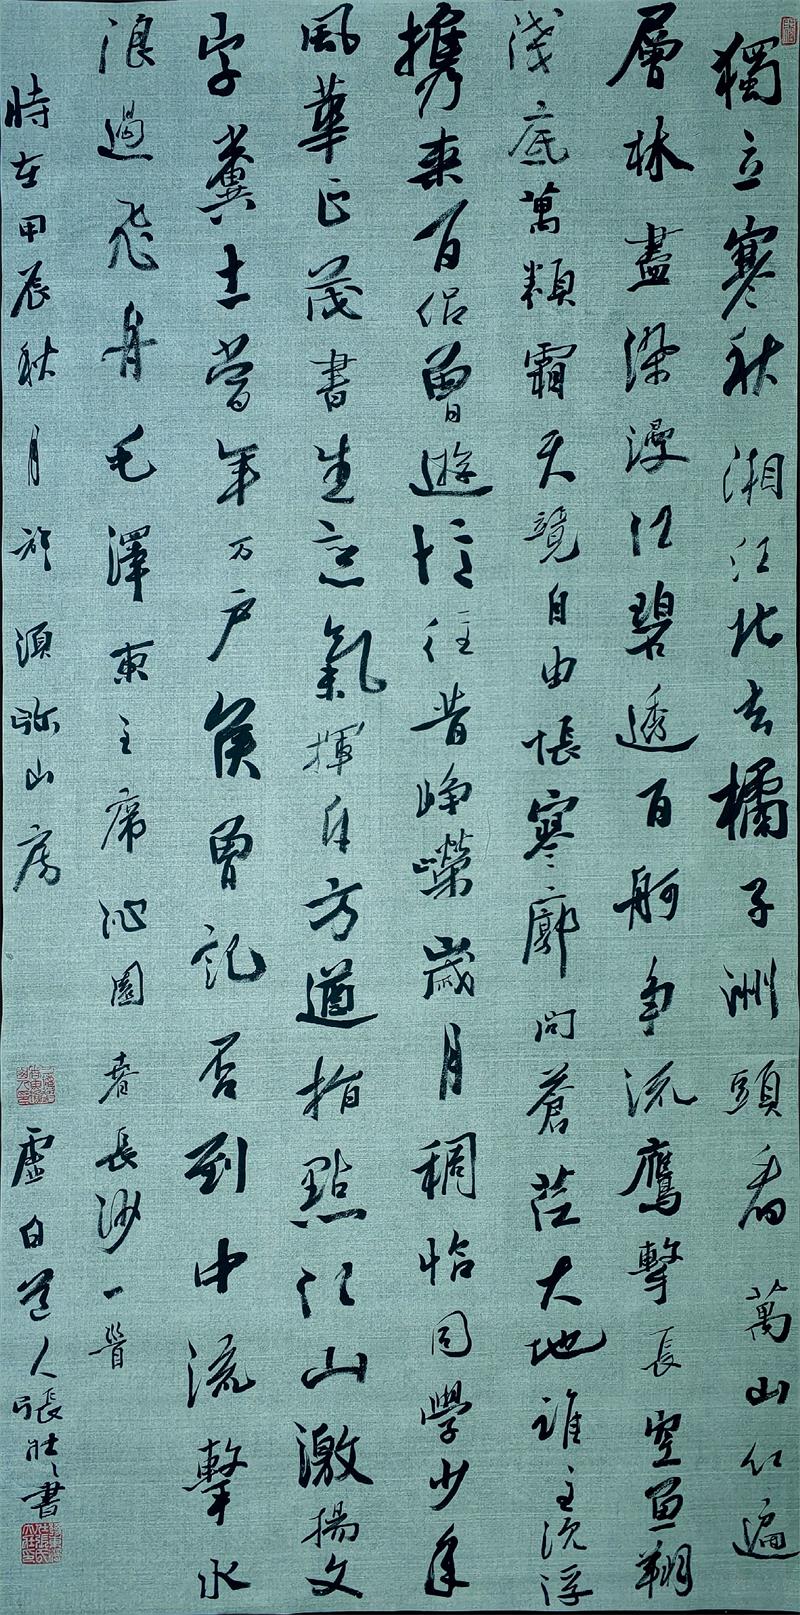 獨立寒秋湘江北去橘子洲頭看萬山红遍
層林盡染漫江碧透百舸争流鷹擊長空魚翔
淺底萬類霜天競自由悵寥廓問蒼茫大地誰主沉浮
携來百侣曾遊憶往昔崢嶸歲月稠恰同學少年
風華正茂書生意氣揮斥方遒指點江山激揚文
字糞土當年万户侯曾記否到中流擊水
浪遏飛舟毛澤東主席沁園春長沙一首
時在甲辰秋月於須弥山房
虛白道人張壯之書